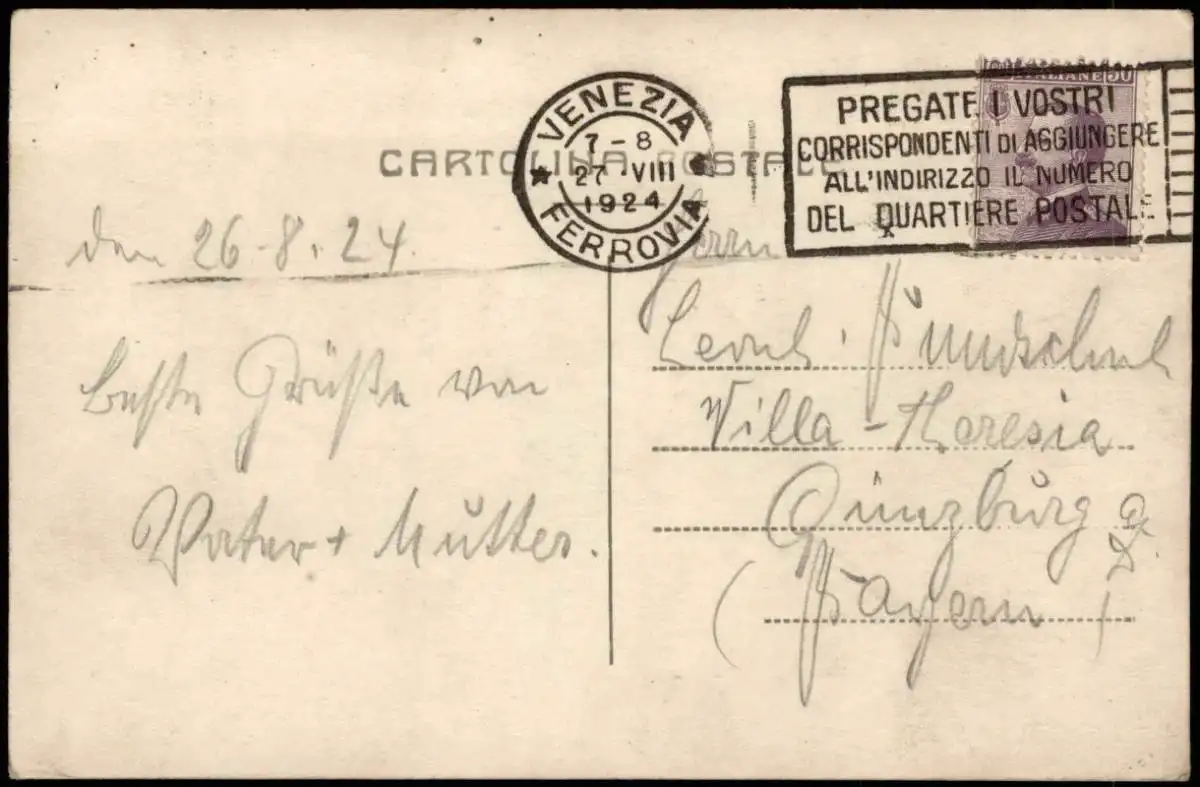 CARTOLINA POSTALE
VENEZIA
7-8
27 · VIII
1924
FERROVIA
POSTE ITALIANE 50
PREGATE I VOSTRI
CORRISPONDENTI DI AGGIUNGERE
ALL'INDIRIZZO IL NUMERO
DEL QUARTIERE POSTALE
den 26.8.24.
beste Grüße von
Vater + Mutter.
Herrn
Villa-Theresia
Günzburg a
D.
(Bayern)